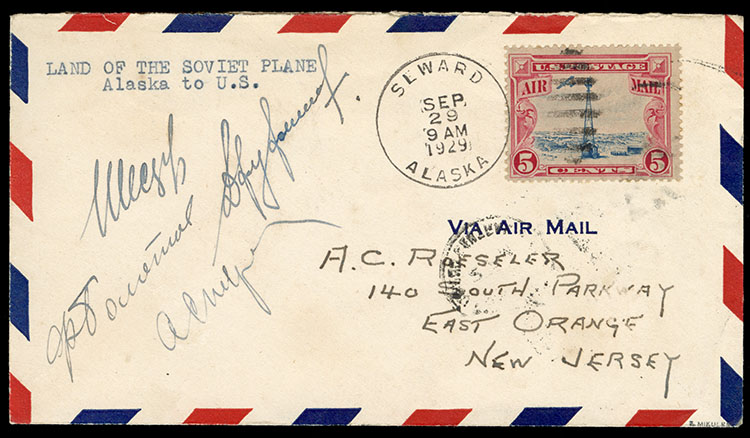 LAND OF THE SOVIET PLANE
Alaska to U.S.
SEWARD
SEP
29
9 AM
1929
ALASKA
U.S. POSTAGE
AIR MAIL
5 5
CENTS
VIA AIR MAIL
A.C. ROESSLER
140 SOUTH PARKWAY
EAST ORANGE
NEW JERSEY